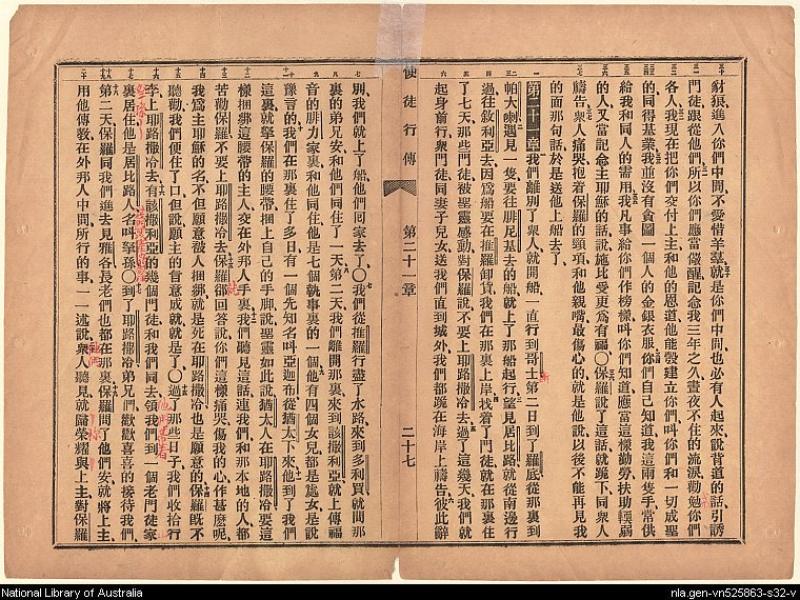 豺狼進入你們中間不愛惜羊羣就是你們中間也必有人起來說背道的話引誘
門徒跟從他們所以你們應當儆醒記念我三年之久晝夜不住的流淚勸勉你們
各人我現在把你們交付上主和他的恩道他能彀建立你們叫你們和一切成聖
的同得基業我並沒有貪圖一個人的金銀衣服你們自己知道我這兩隻手常供
給我和同人的需用我凡事給你們作榜樣叫你們知道應當這樣勤勞扶助輭弱
的人又當記念主耶穌的話說施比受更爲有福〇保羅說了這話就跪下同衆人
禱告衆人痛哭抱着保羅的頸項和他親嘴最傷心的就是他說以後不能再見我
的面那句話於是送他上船去了
第二十一章我們離別了衆人就開船一直行到哥士第二日到了羅底從那裏到
帕大喇遇見一隻要往腓尼基去的船就上了那船起行望見居比路就從南邊行
過往敘利亞去因爲船要在推羅卸貨我們在那裏上岸找着了門徒就在那裏住
了七天那些門徒被聖靈感動對保羅說不要上耶路撒冷去過了這幾天我們就
起身前行衆門徒同妻子兒女送我們直到城外我們都跪在海岸上禱告彼此辭
使徒行傳
第二十一章
二十七
別我們就上了船他們回家去了〇我們從推羅行盡了水路來到多利買就問那
裏的弟兄安和他們同住了一天第二天我們離開那裏來到該撒利亞就上傳福
音的腓力家裏和他同住他是七個執事裏的一個他有四個女兒都是處女是說
豫言的我們在那裏住了多日有一個先知名叫亞迦布從猶太下來他到了我們
這裏就拏保羅的腰帶捆上自己的手脚說聖靈如此說猶太人在耶路撒冷要這
樣捆綁這腰帶的主人交在外邦人手裏我們聽見這話連我們和那本地的人都
苦勸保羅不要上耶路撒冷去保羅卻回答說你們這樣痛哭傷我的心作甚麼呢
我爲主耶穌的名不但願意被人捆綁就是死在耶路撒冷也是願意的保羅旣不
聽勸我們便住了口但說願主的旨意成就就是了〇過了那些日子我們收拾行
李上耶路撒冷去有該撒利亞的幾個門徒和我們同去領我們到一個老門徒家
裏居住他是居比路人名叫拏孫〇到了耶路撒冷弟兄們歡歡喜喜的接待我們
第二天保羅同我們進去見雅各長老們也都在那裏保羅問了他們安就將上主
用他傳敎在外邦人中間所行的事一一述說衆人聽見就歸榮耀與上主對保羅
National Library of Australia
nla.gen-vn525863-s32-v